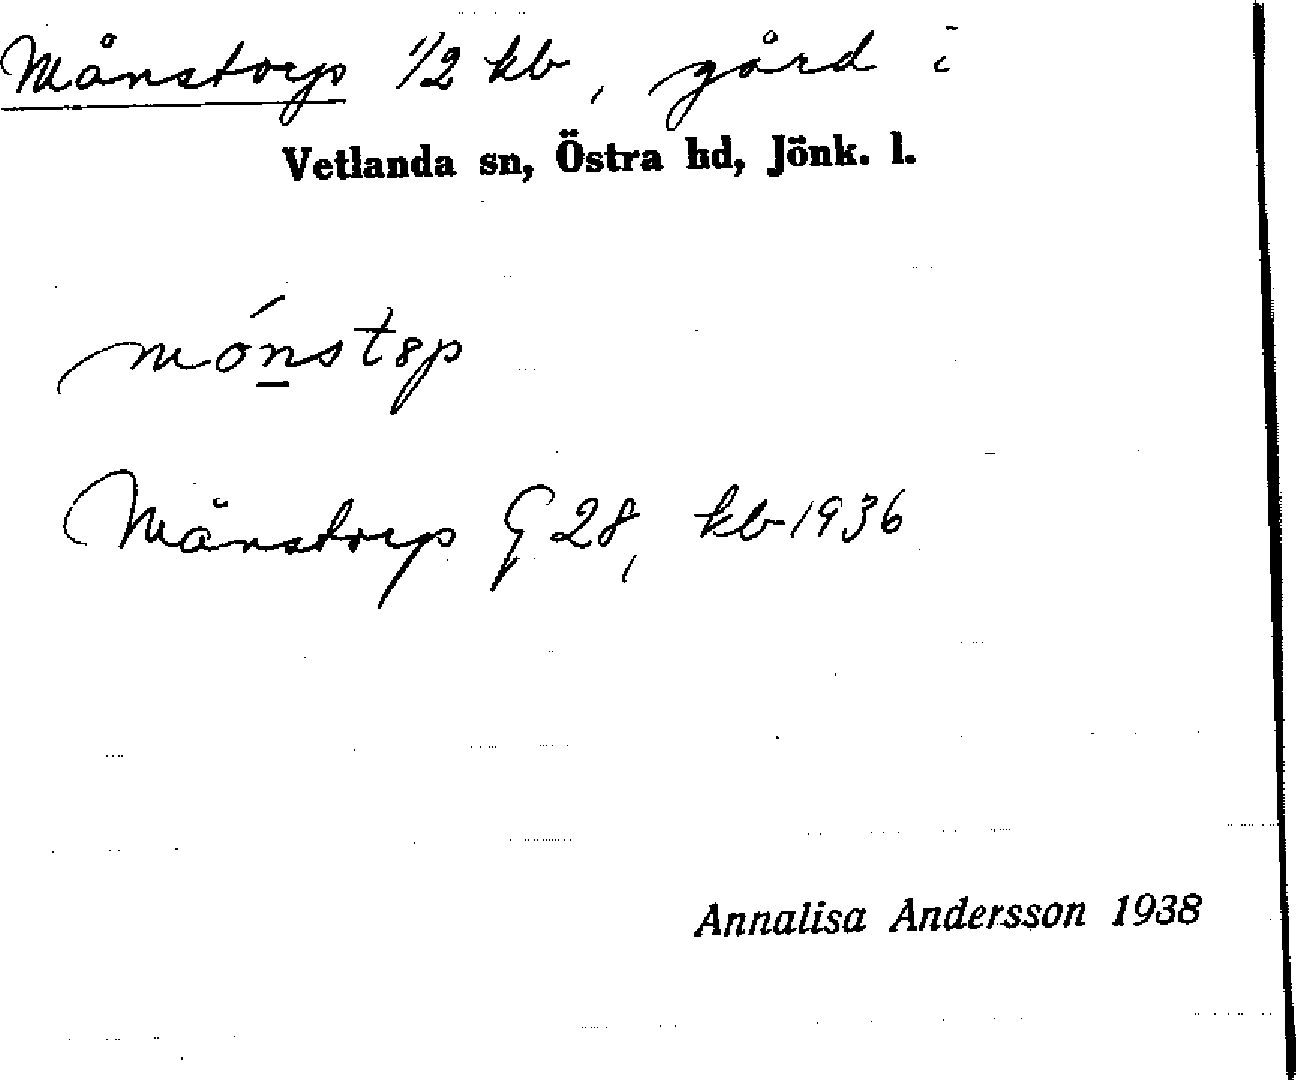 Månstorp 1/2 kb, gård i
Vetlanda sn, Östra hd, Jönk. l.
mónstep
Månstorp G 28, kb 1936
Annalisa Andersson 1938